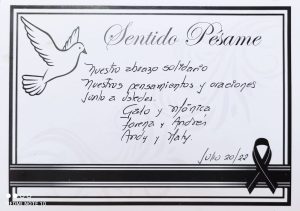 Sentido Pésame
Nuestro abrazo solidario
Nuestros pensamientos y oraciones
Junto a ustedes.
Galo y Mónica
Lorena y Andrés
Andy y Naty.
Julio 20/22
REDMI NOTE 10